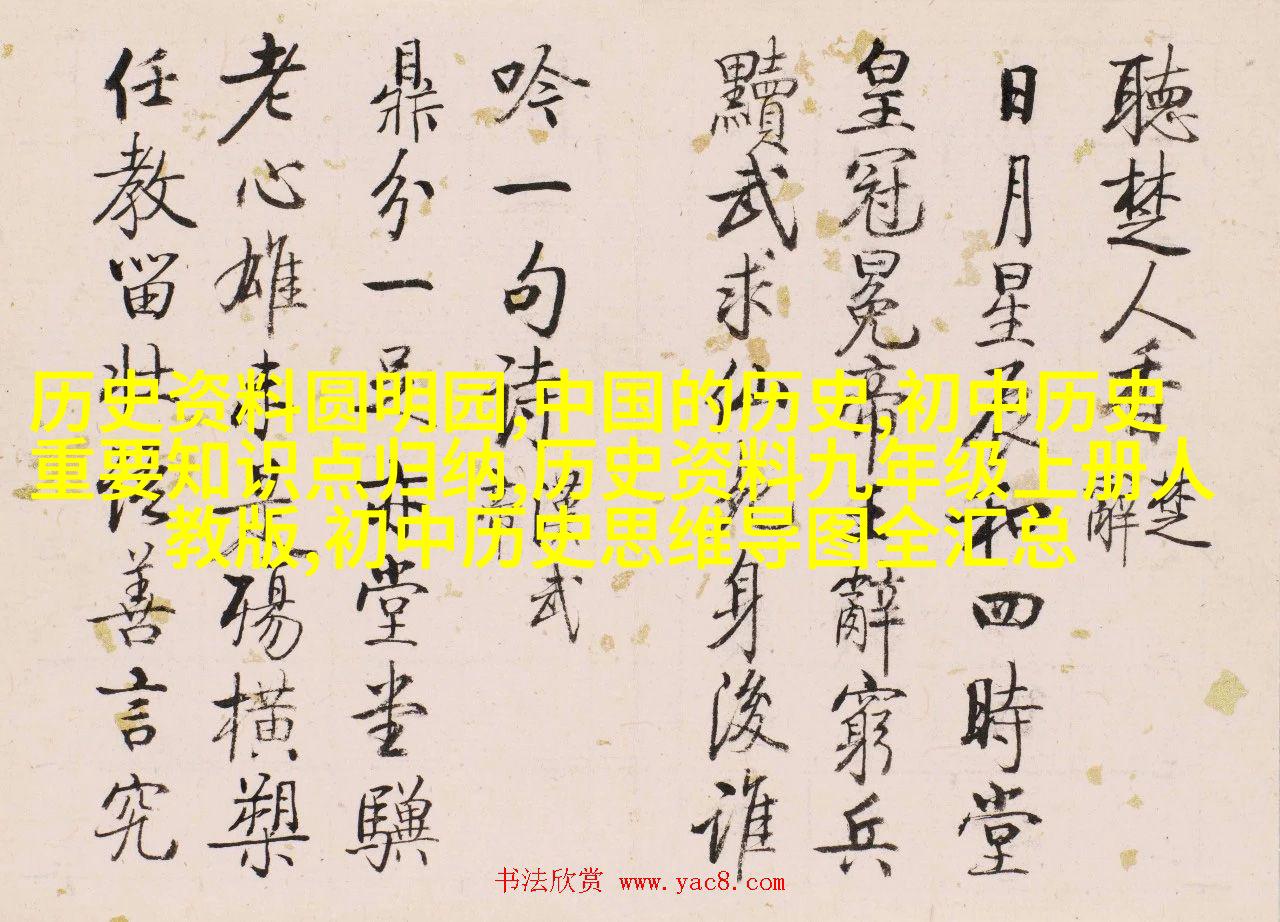 聽楚人
楚
日月星辰和四時堂
皇冠冕帝王辭窮兵
黷武求仙死身後誰
吟一句詩
漢武
鼎分一堂堂驥
老心雄殤橫槊
任教留壯語善言究
历史资料圆明园,中国的历史,初中历史
重要知识点归纳,历史资料九年级上册人
教版,初中历史思维导图全汇总
书法欣赏 www.yac8.com